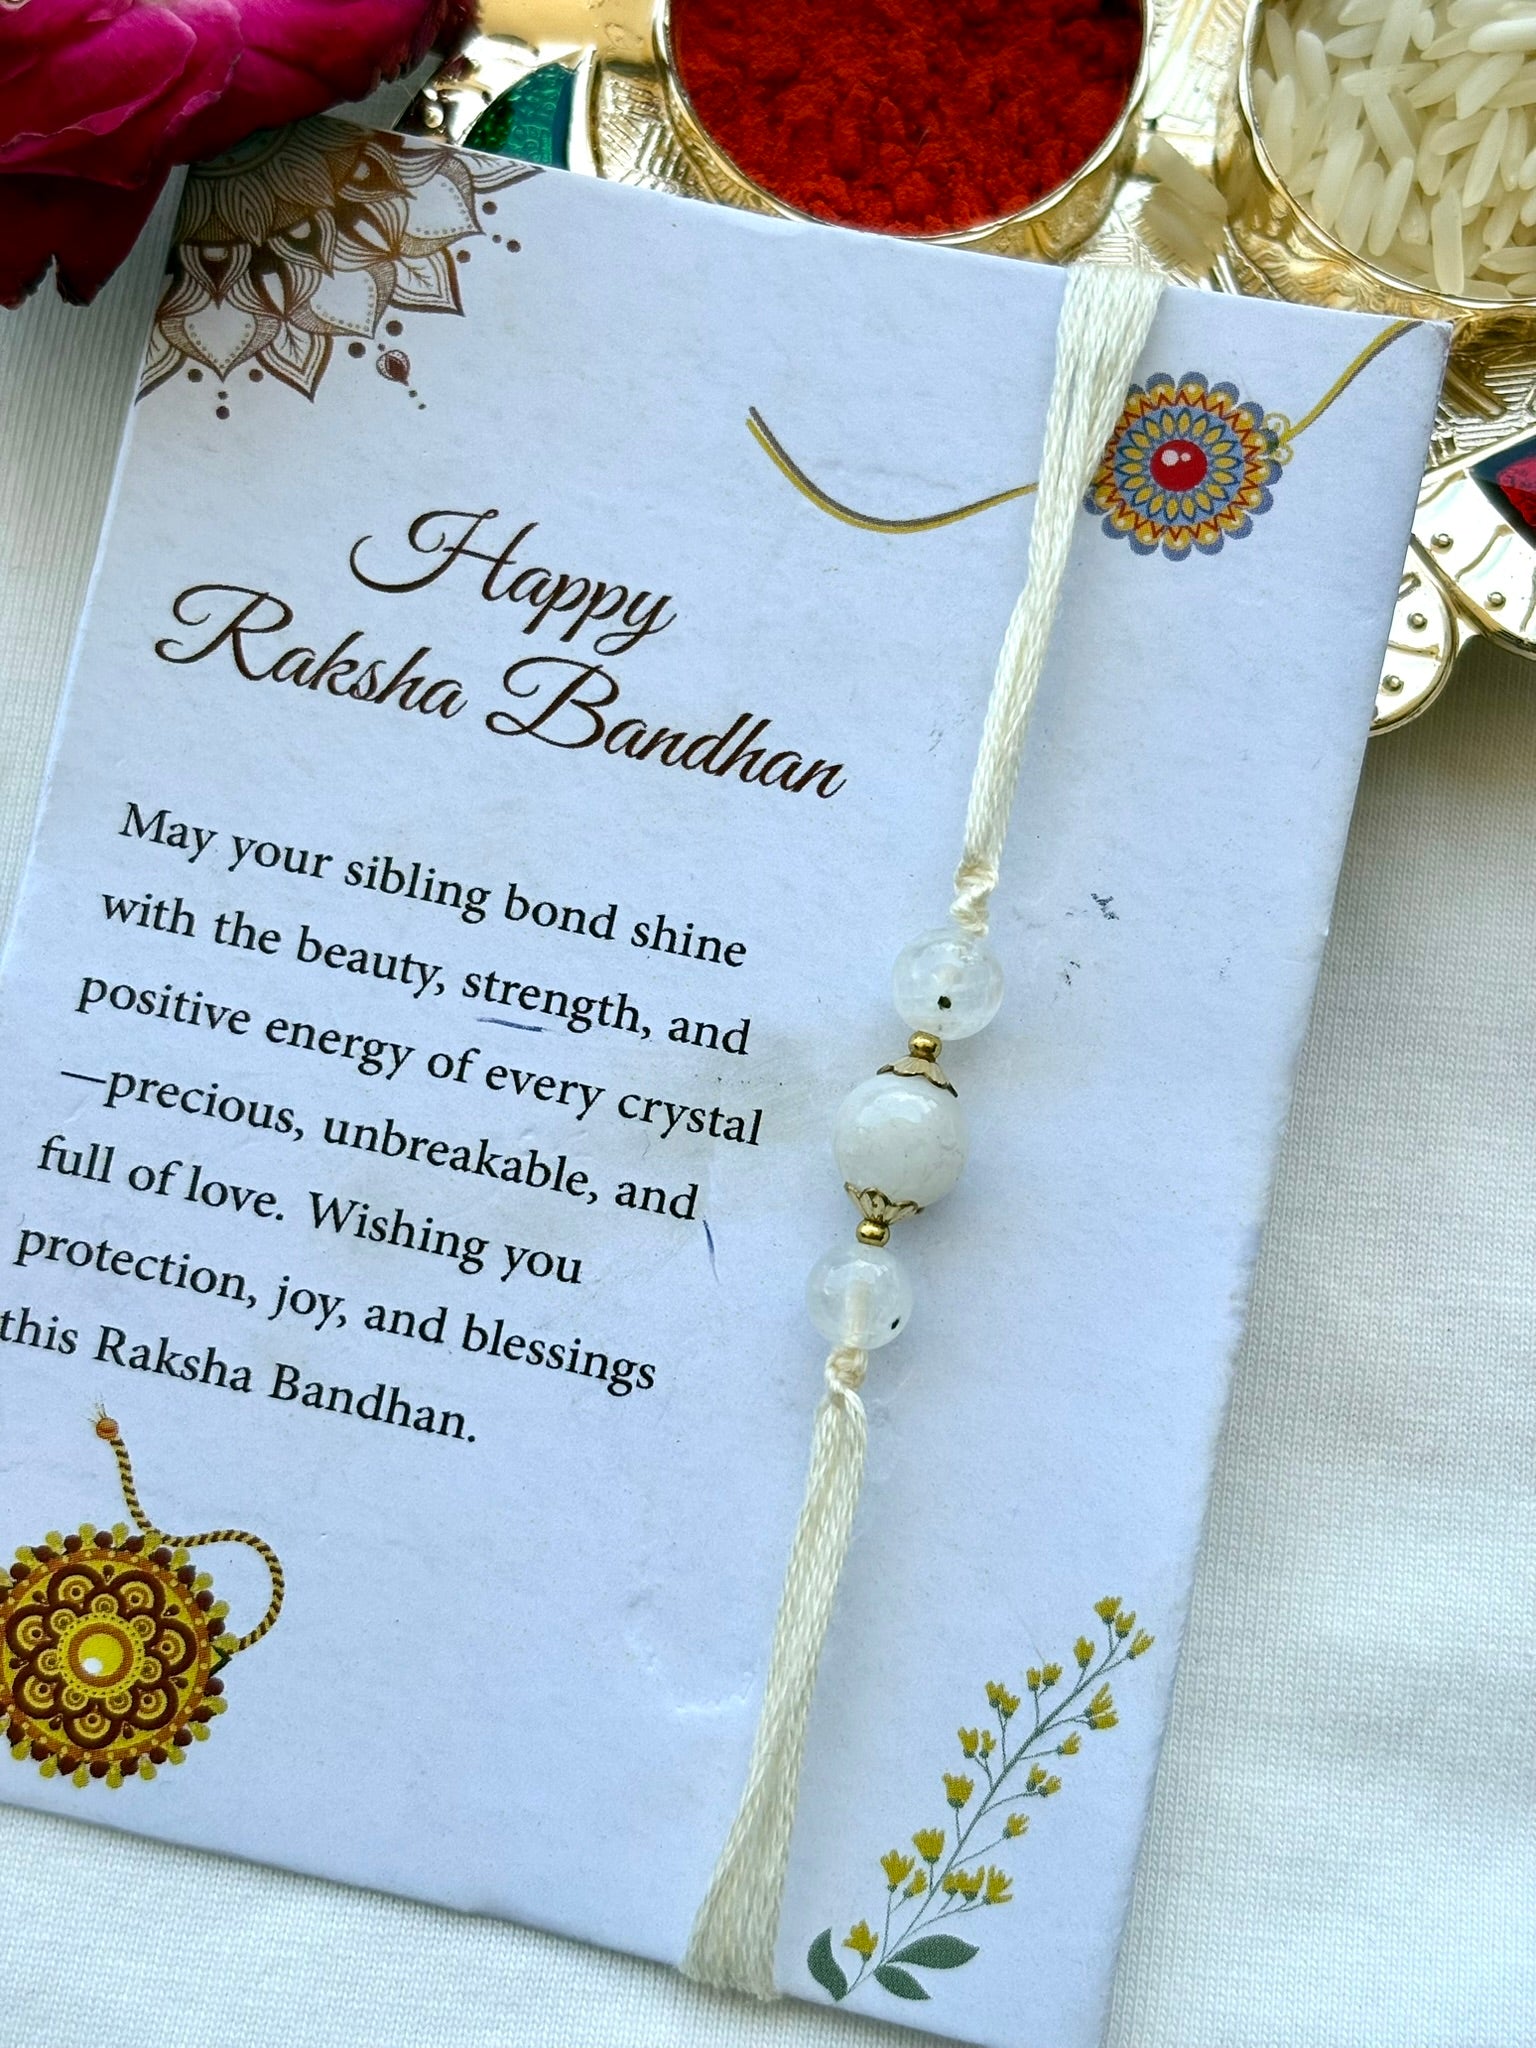 Happy
Raksha Bandhan
May your sibling bond shine
with the beauty, strength, and
positive energy of every crystal
—precious, unbreakable, and
full of love. Wishing you
protection, joy, and blessings
this Raksha Bandhan.